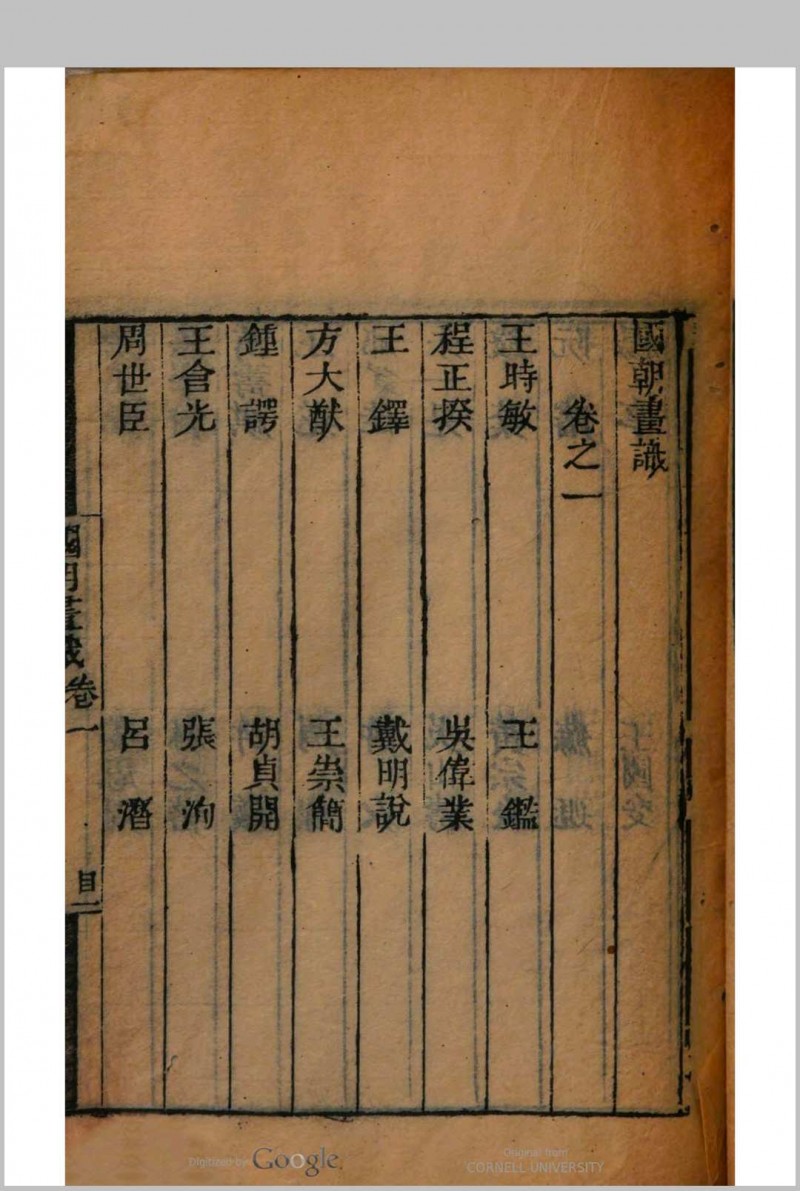 國朝畫識
卷之一
王時敏 王 鑑
程正揆 吳偉業
王 鐸 戴明說
方大猷 王崇簡
鍾 諤 胡貞開
王含光 張 洵
周世臣 呂 潛
國朝畫識 卷一 目一
Digitized by Google
Original from
CORNELL UNIVERSITY